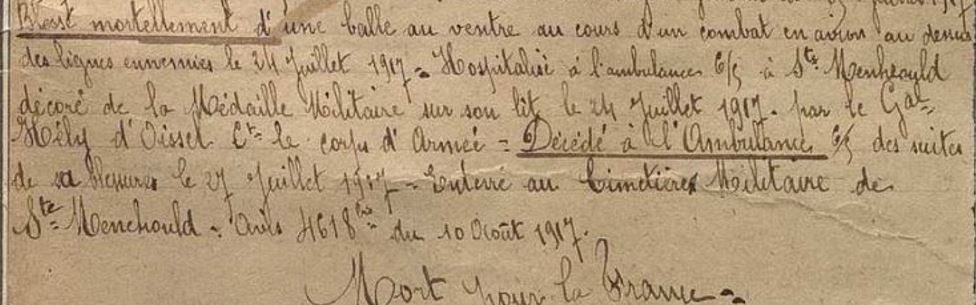 Blessé mortellement d'une balle au ventre au cours d'un combat en avion au dessus
des lignes ennemies le 24 Juillet 1917 = Hospitalisé à l'ambulance 6/5 à Ste Menheould
décoré de la Médaille Militaire sur son lit le 24 Juillet 1917. par le Gal=
Hély d'Oissel Ct= le corps d'Armée = Décédé à l'Ambulance 6/5 des suites
de sa blessures le 27 Juillet 1917 = Enterré au Cimetière Militaire de
Ste= Menehould = avis 4618 du 10 Août 1917.
Mort pour la France =